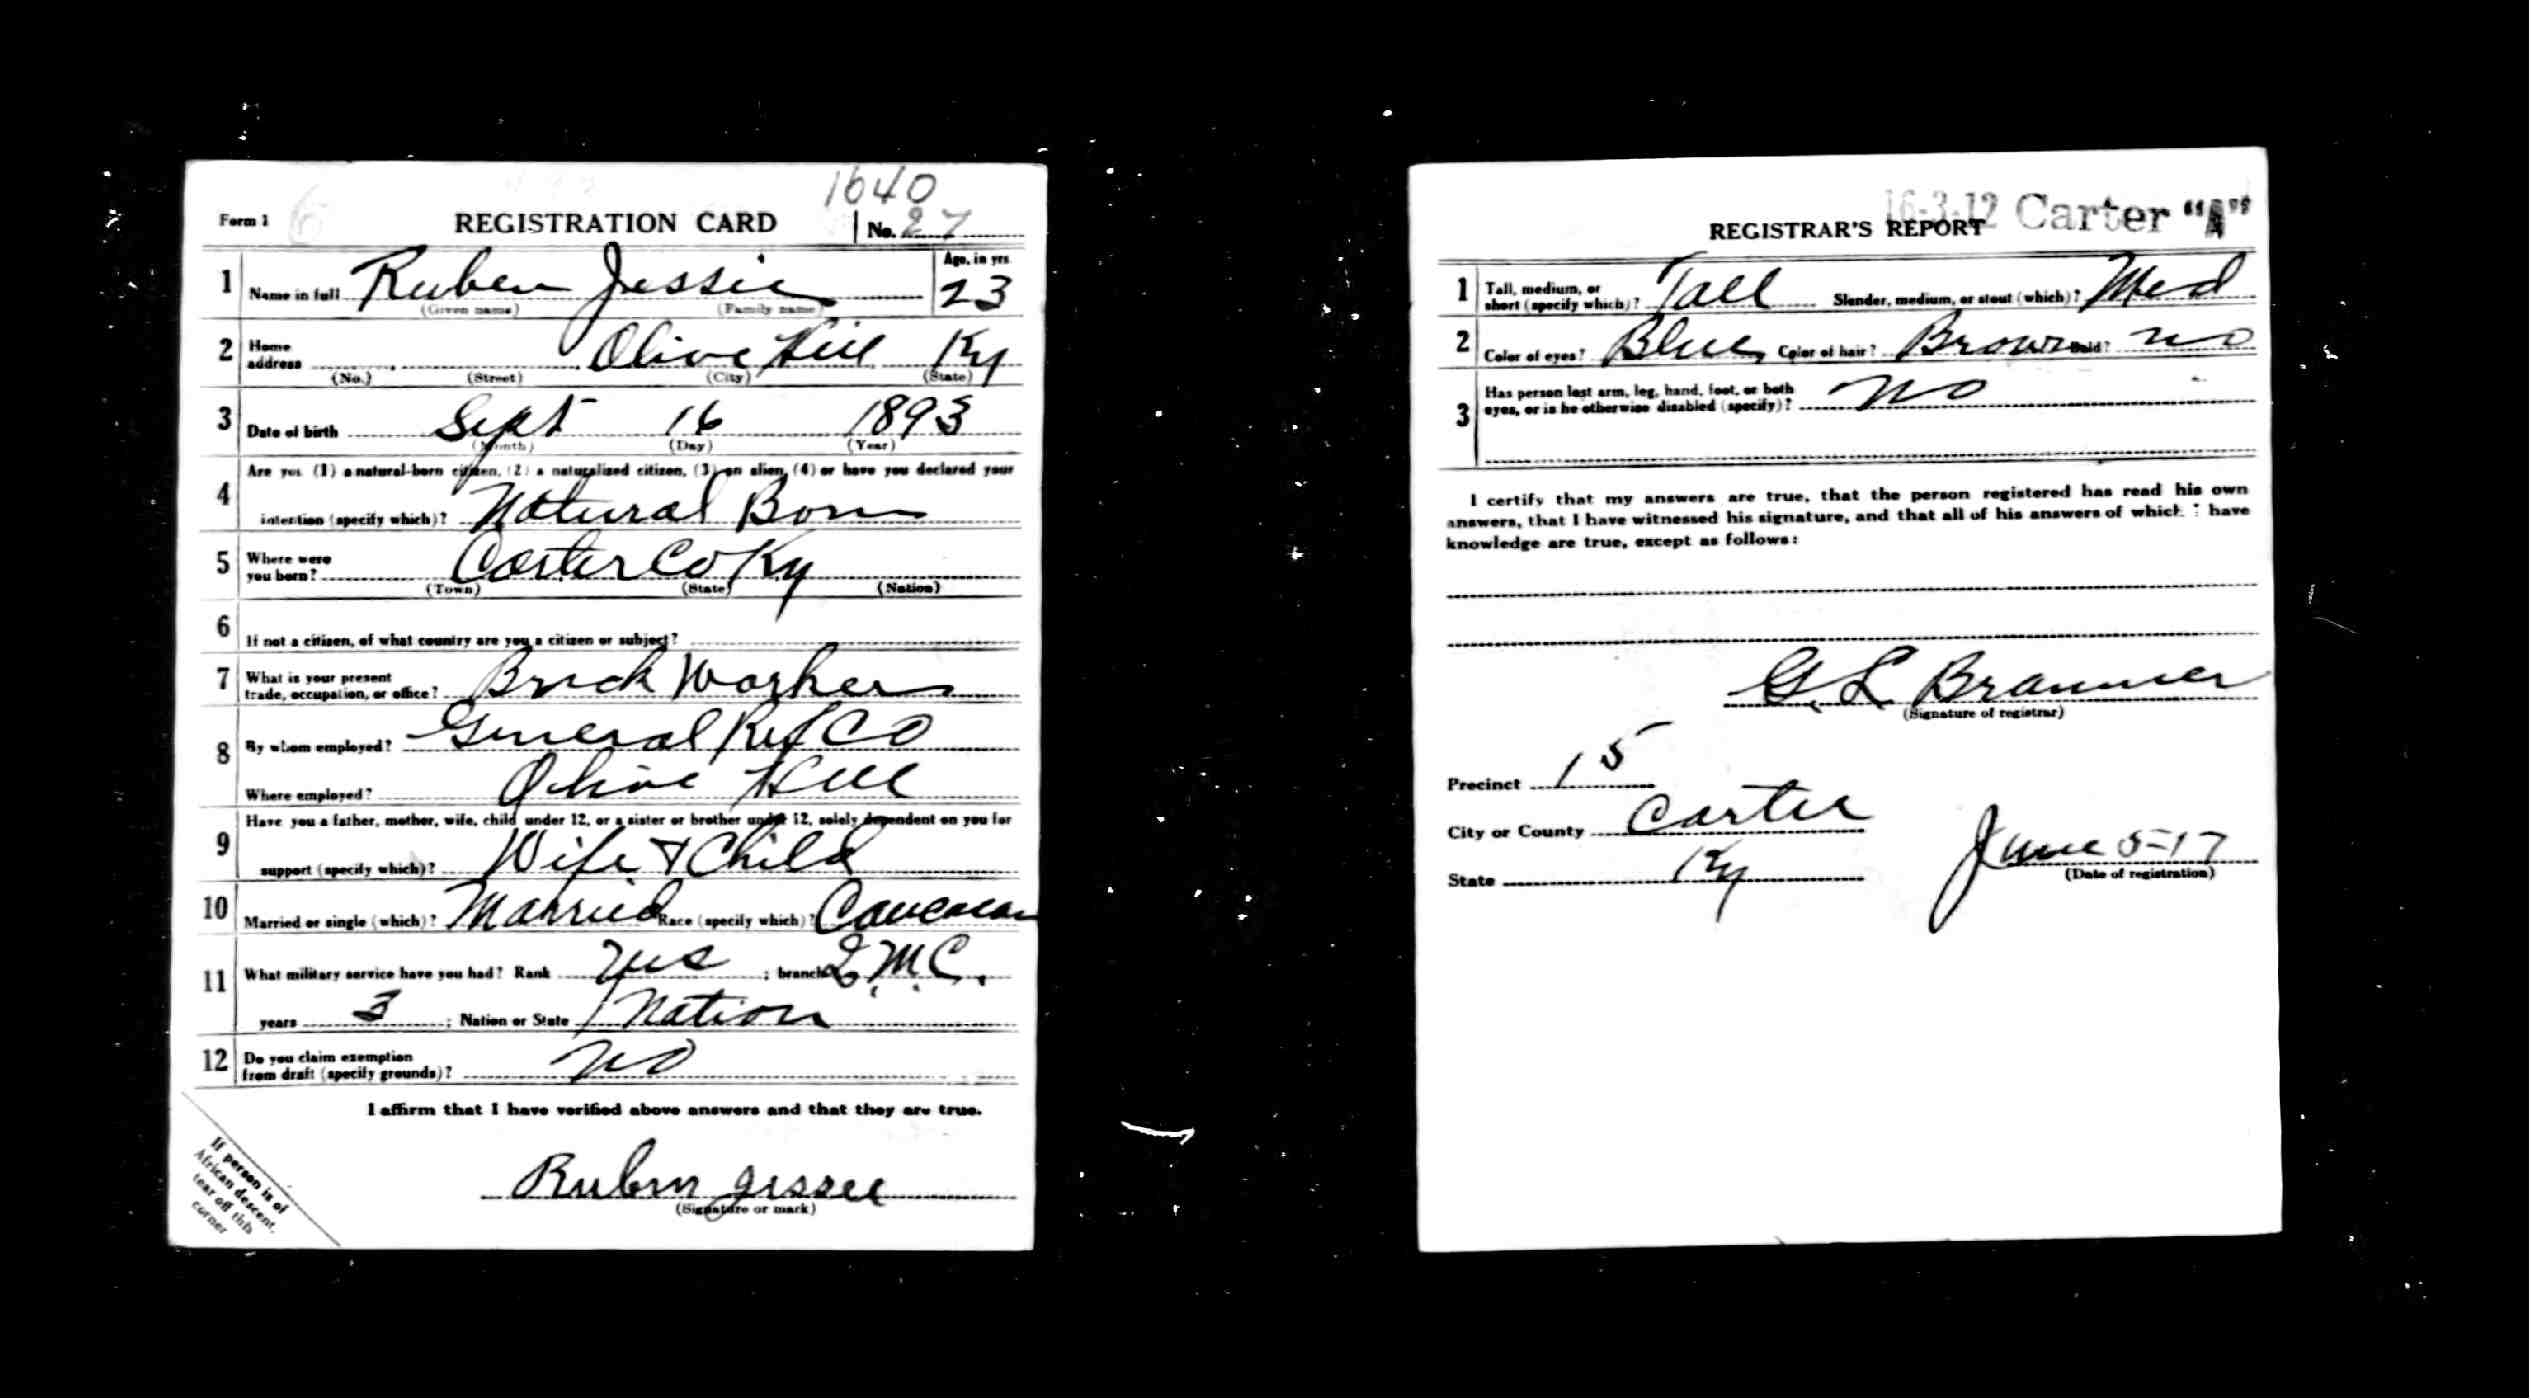 1640
Form 1 REGISTRATION CARD No. 27
1 Name in full Ruben Jessie Age, in yrs 23
(Given name) (Family name)
2 Home address Olive Hill Ky
(No.) (Street) (City) (State)
3 Date of birth Sept 16 1893
(Month) (Day) (Year)
4 Are you (1) a natural-born citizen, (2) a naturalized citizen, (3) an alien, (4) or have you declared your
intention (specify which)? Natural Born
5 Where were you born? Carter Co Ky
(Town) (State) (Nation)
6 If not a citizen, of what country are you a citizen or subject?
7 What is your present trade, occupation, or office? Brick Worker
8 By whom employed? General Ref Co
Where employed? Olive Hill
9 Have you a father, mother, wife, child under 12, or a sister or brother under 12, solely dependent on you for
support (specify which)? Wife & Child
10 Married or single (which)? Married Race (specify which)? Caucasian
11 What military service have you had? Rank yes ; branch Q.M.C.
years 3 ; Nation or State Nation
12 Do you claim exemption from draft (specify grounds)? no
I affirm that I have verified above answers and that they are true.
Ruben Jessee
(Signature or mark)
If person is of
African descent,
tear off this
corner
16-3-12 Carter "A"
REGISTRAR'S REPORT
1 Tall, medium, or short (specify which)? Tall Slender, medium, or stout (which)? Med
2 Color of eyes? Blue Color of hair? Brown Bald? no
3 Has person lost arm, leg, hand, foot, or both
eyes, or is he otherwise disabled (specify)? no
I certify that my answers are true, that the person registered has read his own
answers, that I have witnessed his signature, and that all of his answers of which I have
knowledge are true, except as follows:
G. L. Brammer
(Signature of registrar)
Precinct 15
City or County Carter
State Ky
June 5-17
(Date of registration)